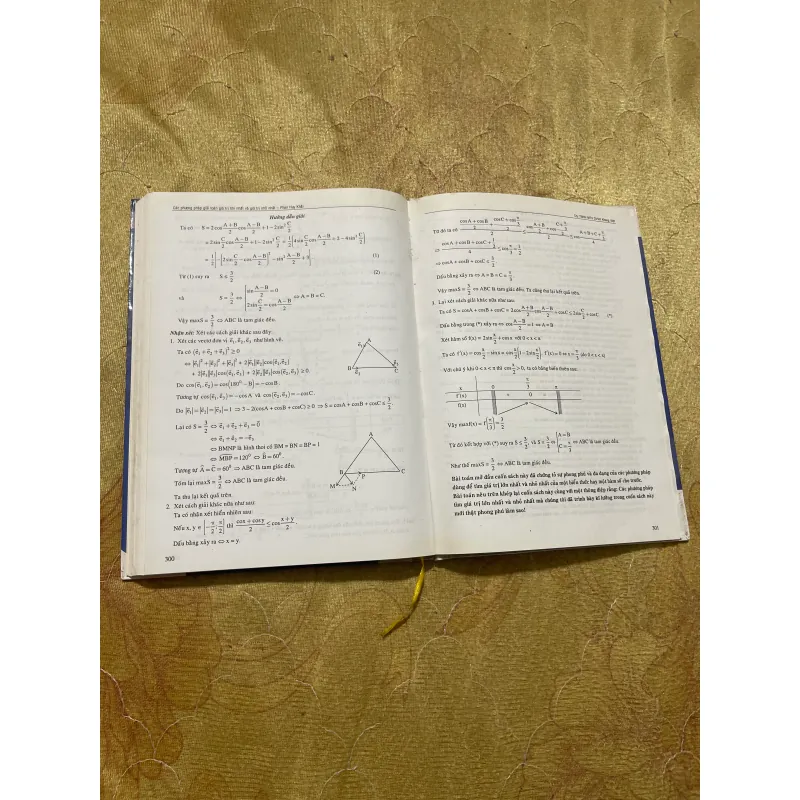 Các phương pháp giải toán giá trị lớn nhất và giá trị nhỏ nhất – Phan Huy Khải
Hướng dẫn giải
Ta có S = 2cos (A+B)/2 cos (A−B)/2 + 1 − 2sin² C/2
= 2sin C/2 cos (A−B)/2 + 1 − 2sin² C/2 = 1/2 [4sin C/2 cos (A−B)/2 + 2 − 4sin² C/2]
(1)
Từ (1) suy ra S ≤ 3/2 (2)
và S = 3/2 ⇔ { sin (A−B)/2 = 0
2sin C/2 = cos (A−B)/2 ⇔ A = B = C.
Vậy maxS = 3/2 ⇔ ABC là tam giác đều.
Nhận xét: Xét các cách giải khác sau đây:
1. Xét các vectơ đơn vị e₁, e₂, e₃ như hình vẽ.
Ta có (e₁ + e₂ + e₃)² ≥ 0
⇔ |e₁|² + |e₂|² + |e₃|² + 2|e₁||e₂|cos(e₁, e₂)
+ 2|e₂||e₃|cos(e₂, e₃) ≥ 0.
Do cos(e₁, e₂) = cos(180⁰ − B) = −cosB.
Do |e₁| = |e₂| = |e₃| = 1 ⇒ 3 − 2(cosA + cosB + cosC) ≥ 0 ⇒ S = cosA + cosB + cosC ≤ 3/2.
Lại có S = 3/2 ⇔ e₁ + e₂ + e₃ = 0
⇔ e₁ + e₂ = −e₃
⇔ BMNP là hình thoi có BM = BN = BP = 1
⇔ MBP = 120⁰ ⇔ B = 60⁰.
Tương tự A = C = 60⁰ ⇔ ABC là tam giác đều.
Tóm lại maxS = 3/2 ⇔ ABC là tam giác đều.
Ta thu lại kết quả trên.
2. Xét cách giải khác nữa như sau:
Ta có nhận xét hiển nhiên sau:
Nếu x, y ∈ [−π/2; π/2] thì (cosx + cosy)/2 ≤ cos (x+y)/2.
Dấu bằng xảy ra ⇔ x = y.
A
B
C
A
B
P
C
M
N
300
Từ đó ta có
⇒ (cosA + cosB + cosC + 1/2)/4 ≤ cos π/3 = 1/2
⇒ cosA + cosB + cosC ≤ 3/2.
Dấu bằng xảy ra ⇔ A = B = C = π/3
Vậy maxS = 3/2 ⇔ ABC là tam giác đều. Ta cũng thu lại kết quả trên.
3. Lại xét cách giải khác nữa như sau:
Ta có S = cosA + cosB + cosC = 2cos (A+B)/2 cos (A−B)/2 + cosC ≤ 2sin C/2 + cosC. (*)
Dấu bằng trong (*) xảy ra ⇔ cos (A−B)/2 = 1 ⇔ A = B.
Xét hàm số f(x) = 2sin x/2 + cosx với 0 < x < π
Ta có f'(x) = cos x/2 − sinx = cos x/2 (1 − 2sin x/2). f'(x) = 0 ⇔ x = π/3 (do 0 < x < π)
Với chú ý khi 0 < x < π thì cos x/2 > 0, ta có bảng biến thiên sau:
x 0 π/3 π
f'(x) + 0 −
f(x)
Vậy maxf(x) = f(π/3) = 3/2
Từ đó kết hợp với (*) suy ra S ≤ 3/2, và S = 3/2 ⇔ { A = B
C = π/3 ⇔ ABC là tam giác đều.
Như thế maxS = 3/2 ⇔ ABC là tam giác đều.
Bài toán mở đầu cuốn sách này đã chứng tỏ sự phong phú và đa dạng của các phương pháp
dùng để tìm giá trị lớn nhất và nhỏ nhất của một biểu thức hay một hàm số cho trước.
Bài toán nêu trên khép lại cuốn sách này cùng với một thông điệp rằng: Các phương pháp
tìm giá trị lớn nhất và nhỏ nhất mà chúng tôi đã trình bày kĩ lưỡng trong cuốn sách này
mới thật phong phú làm sao!
301